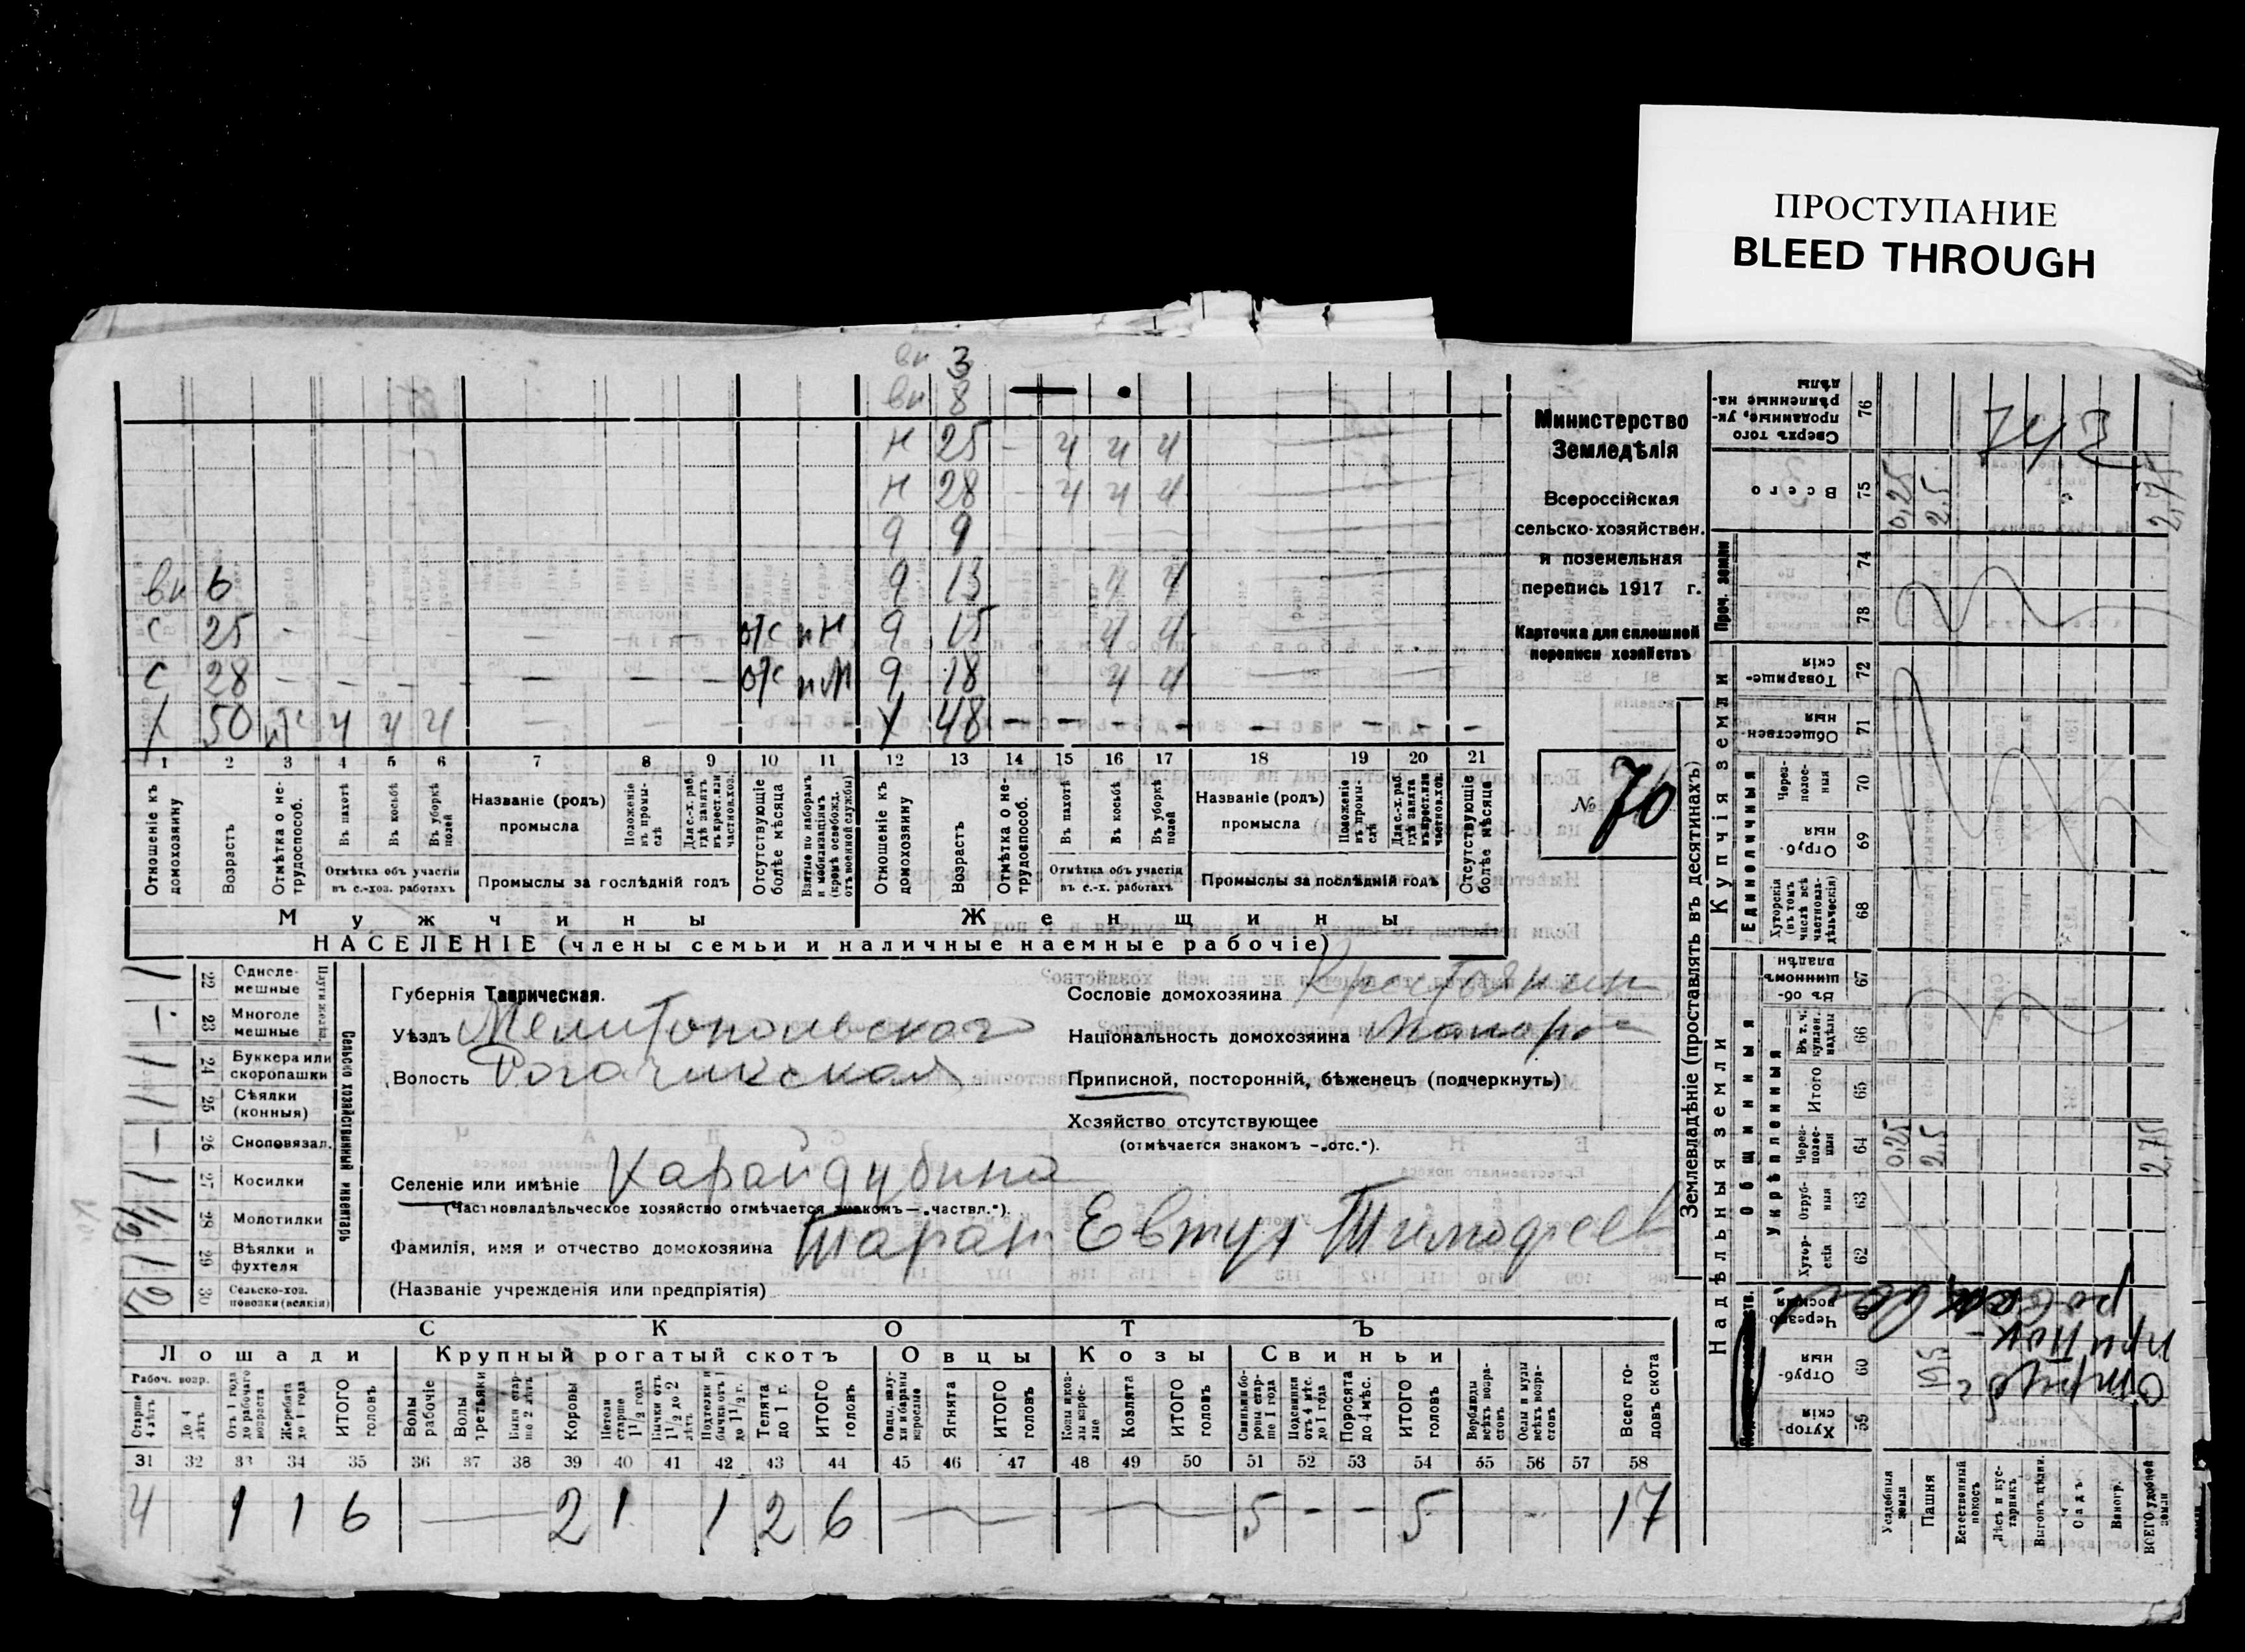 ПРОСТУПАНИЕ
BLEED THROUGH
вн 3
вн 8 — •
н 25 - ч ч ч
н 28 - ч ч ч
9 9
вн 6 9 13 ч ч
с 25 - отс пн 9 15 ч ч
с 28 - - - - - - - отс пм 9 18 ч ч
х 50 ч ч ч — — — - - х 48 - - - - - - - -
1 2 3 4 5 6 7 8 9 10 11 12 13 14 15 16 17 18 19 20 21
Отношеніе къ домохозяину
Возрастъ
Отмѣтка о не-трудоспособ.
Въ пахотѣ
Въ косьбѣ
Въ уборкѣ полей
Отмѣтка объ участіи въ с.-хоз. работахъ
Названіе (родъ) промысла
Положеніе въ промы-слѣ
Для с.-х. раб. гдѣ занятъ въ крест. или частнов. хоз.
Промыслы за послѣдній годъ
Отсутствующіе болѣе мѣсяца
Взятые по наборамъ и мобилизаціямъ (кромѣ освобожд. отъ военной службы)
Отношеніе къ домохозяину
Возрастъ
Отмѣтка о не-трудоспособ.
Въ пахотѣ
Въ косьбѣ
Въ уборкѣ полей
Отмѣтка объ участіи въ с.-х. работахъ
Названіе (родъ) промысла
Положеніе въ промы-слѣ
Для с.-х. раб. гдѣ занята въ крест. или частнов. хоз.
Промыслы за послѣдній годъ
Отсутствующіе болѣе мѣсяца
Мужчины Женщины
НАСЕЛЕНІЕ (члены семьи и наличные наемные рабочіе)
Министерство
Земледѣлія
Всероссійская
сельско-хозяйствен.
и поземельная
перепись 1917 г.
Карточка для сплошной
переписи хозяйствъ
№ 70
Сельско хозяйственный инвентарь
22 Одноле-мешные 1
23 Многоле мешные 1
24 Буккера или скоропашки 1
25 Сѣялки (конныя) 1
26 Сноповязал. —
27 Косилки 1
28 Молотилки 1/2
29 Вѣялки и фухтеля 1
30 Сельско-хоз. повозки (всякія) 2
Губернія Таврическая.
Уѣздъ Мелитопольскаго
Волость Рогачикская
Селеніе или имѣніе Карайдубина
(Частновладѣльческое хозяйство отмѣчается знакомъ — „частвл.“).
Фамилія, имя и отчество домохозяина Таран Евтух Тимофеев
(Названіе учрежденія или предпріятія)
Сословіе домохозяина Крестьянин
Національность домохозяина Малоро
Приписной, посторонній, бѣженецъ (подчеркнуть)
Хозяйство отсутствующее
(отмѣчается знакомъ — „отс.“).
СКОТЪ
Лошади Крупный рогатый скотъ Овцы Козы Свиньи
Рабоч. возр.
Старше 4 лѣтъ
До 4 лѣтъ
Отъ 1 года до рабочаго возраста
Жеребята до 1 года
ИТОГО головъ
Волы рабочіе
Волы третьяки
Быки стар-ше 2 лѣтъ
Коровы
Нетели старше 1 1/2 года
Бычки отъ 1 1/2 до 2 лѣтъ
Подтелки и бычки отъ 1 до 1 1/2 г.
Телята до 1 г.
ИТОГО головъ
Овцы, валу-хи и бараны взрослые
Ягнята
ИТОГО головъ
Козы и коз-лы взрос-лые
Козлята
ИТОГО головъ
Свиньи и бо-ровы стар-ше 1 года
Подсвинки отъ 4 мѣс. до 1 года
Поросята до 4 мѣс.
ИТОГО головъ
Верблюды всѣхъ возра-стовъ
Ослы и мулы всѣхъ возра-стовъ
Всего го-ловъ скота
31 32 33 34 35 36 37 38 39 40 41 42 43 44 45 46 47 48 49 50 51 52 53 54 55 56 57 58
4 1 1 6 — 2 1 1 2 6 — — 5 - - 5 17
Землевладѣніе (проставлять въ десятинахъ)
Надѣльныя земли
Купчія земли
Общинныя
Укрѣпленныя
Единоличныя
Проч. земли
Сверхъ того проданные, ук-рѣпленные на-дѣлы 76
Всего 75
74
73
Товарище-скія 72
Обществен-ныя 71
Через-полос-ныя 70
Отруб-ныя 69
Хуторскія (въ томъ числѣ всѣ частновла-дѣльческія) 68
Въ об-щинномъ владѣн. 67
Въ т. ч. куплен. надѣлы 66
Итого 65
Через-полос-ныя 64
Отруб-ныя 63
Хутор-скія 62
Отруб-ныя 60
Хутор-скія 59
Усадебныя земли 0,25 0,25
Пашня 2,5 2,5
Естественный покосъ
Лѣсъ и кус-тарникъ
Выгонъ, цѣлин.
Садъ
Виногр.
ВСЕГО удобной земли 2,75 2,75
743